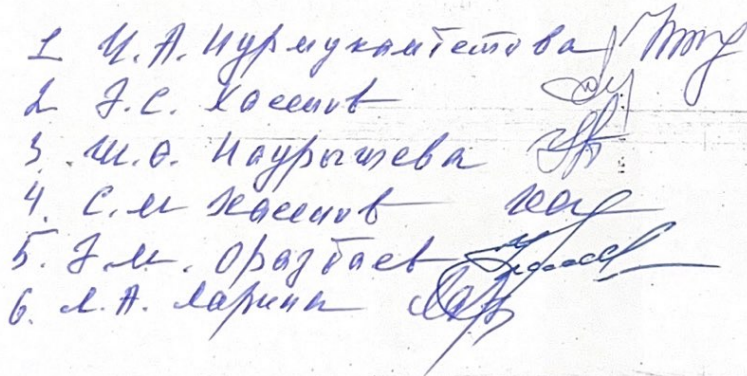 1 И.А. Нурмухамбетова
2 Э.С. Касенов
3. Ш.О. Наурызшева
4. С.М Хасенов
5. Э.М. Оразбаев
6. Л.А. Ларина